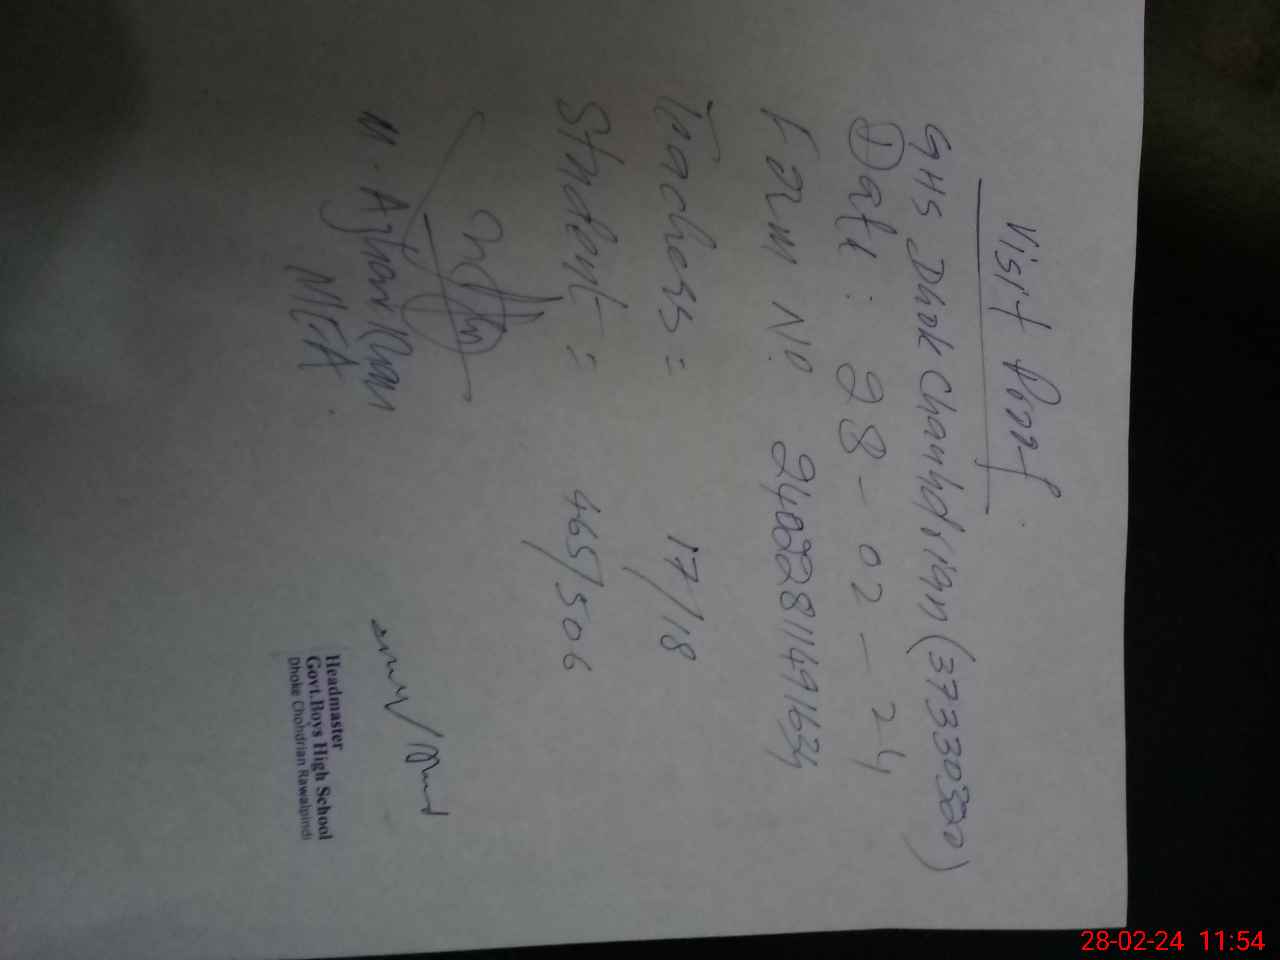 Visit Proof
GHS Dhok Chauhdrian (37330320)
Date: 28-02-24
Form No 24022811491634
Teachers = 17/18
Student = 465/506
M. Azhar Khan
MEA
Headmaster
Govt.Boys High School
Dhoke Chohdrian Rawalpindi
28-02-24 11:54